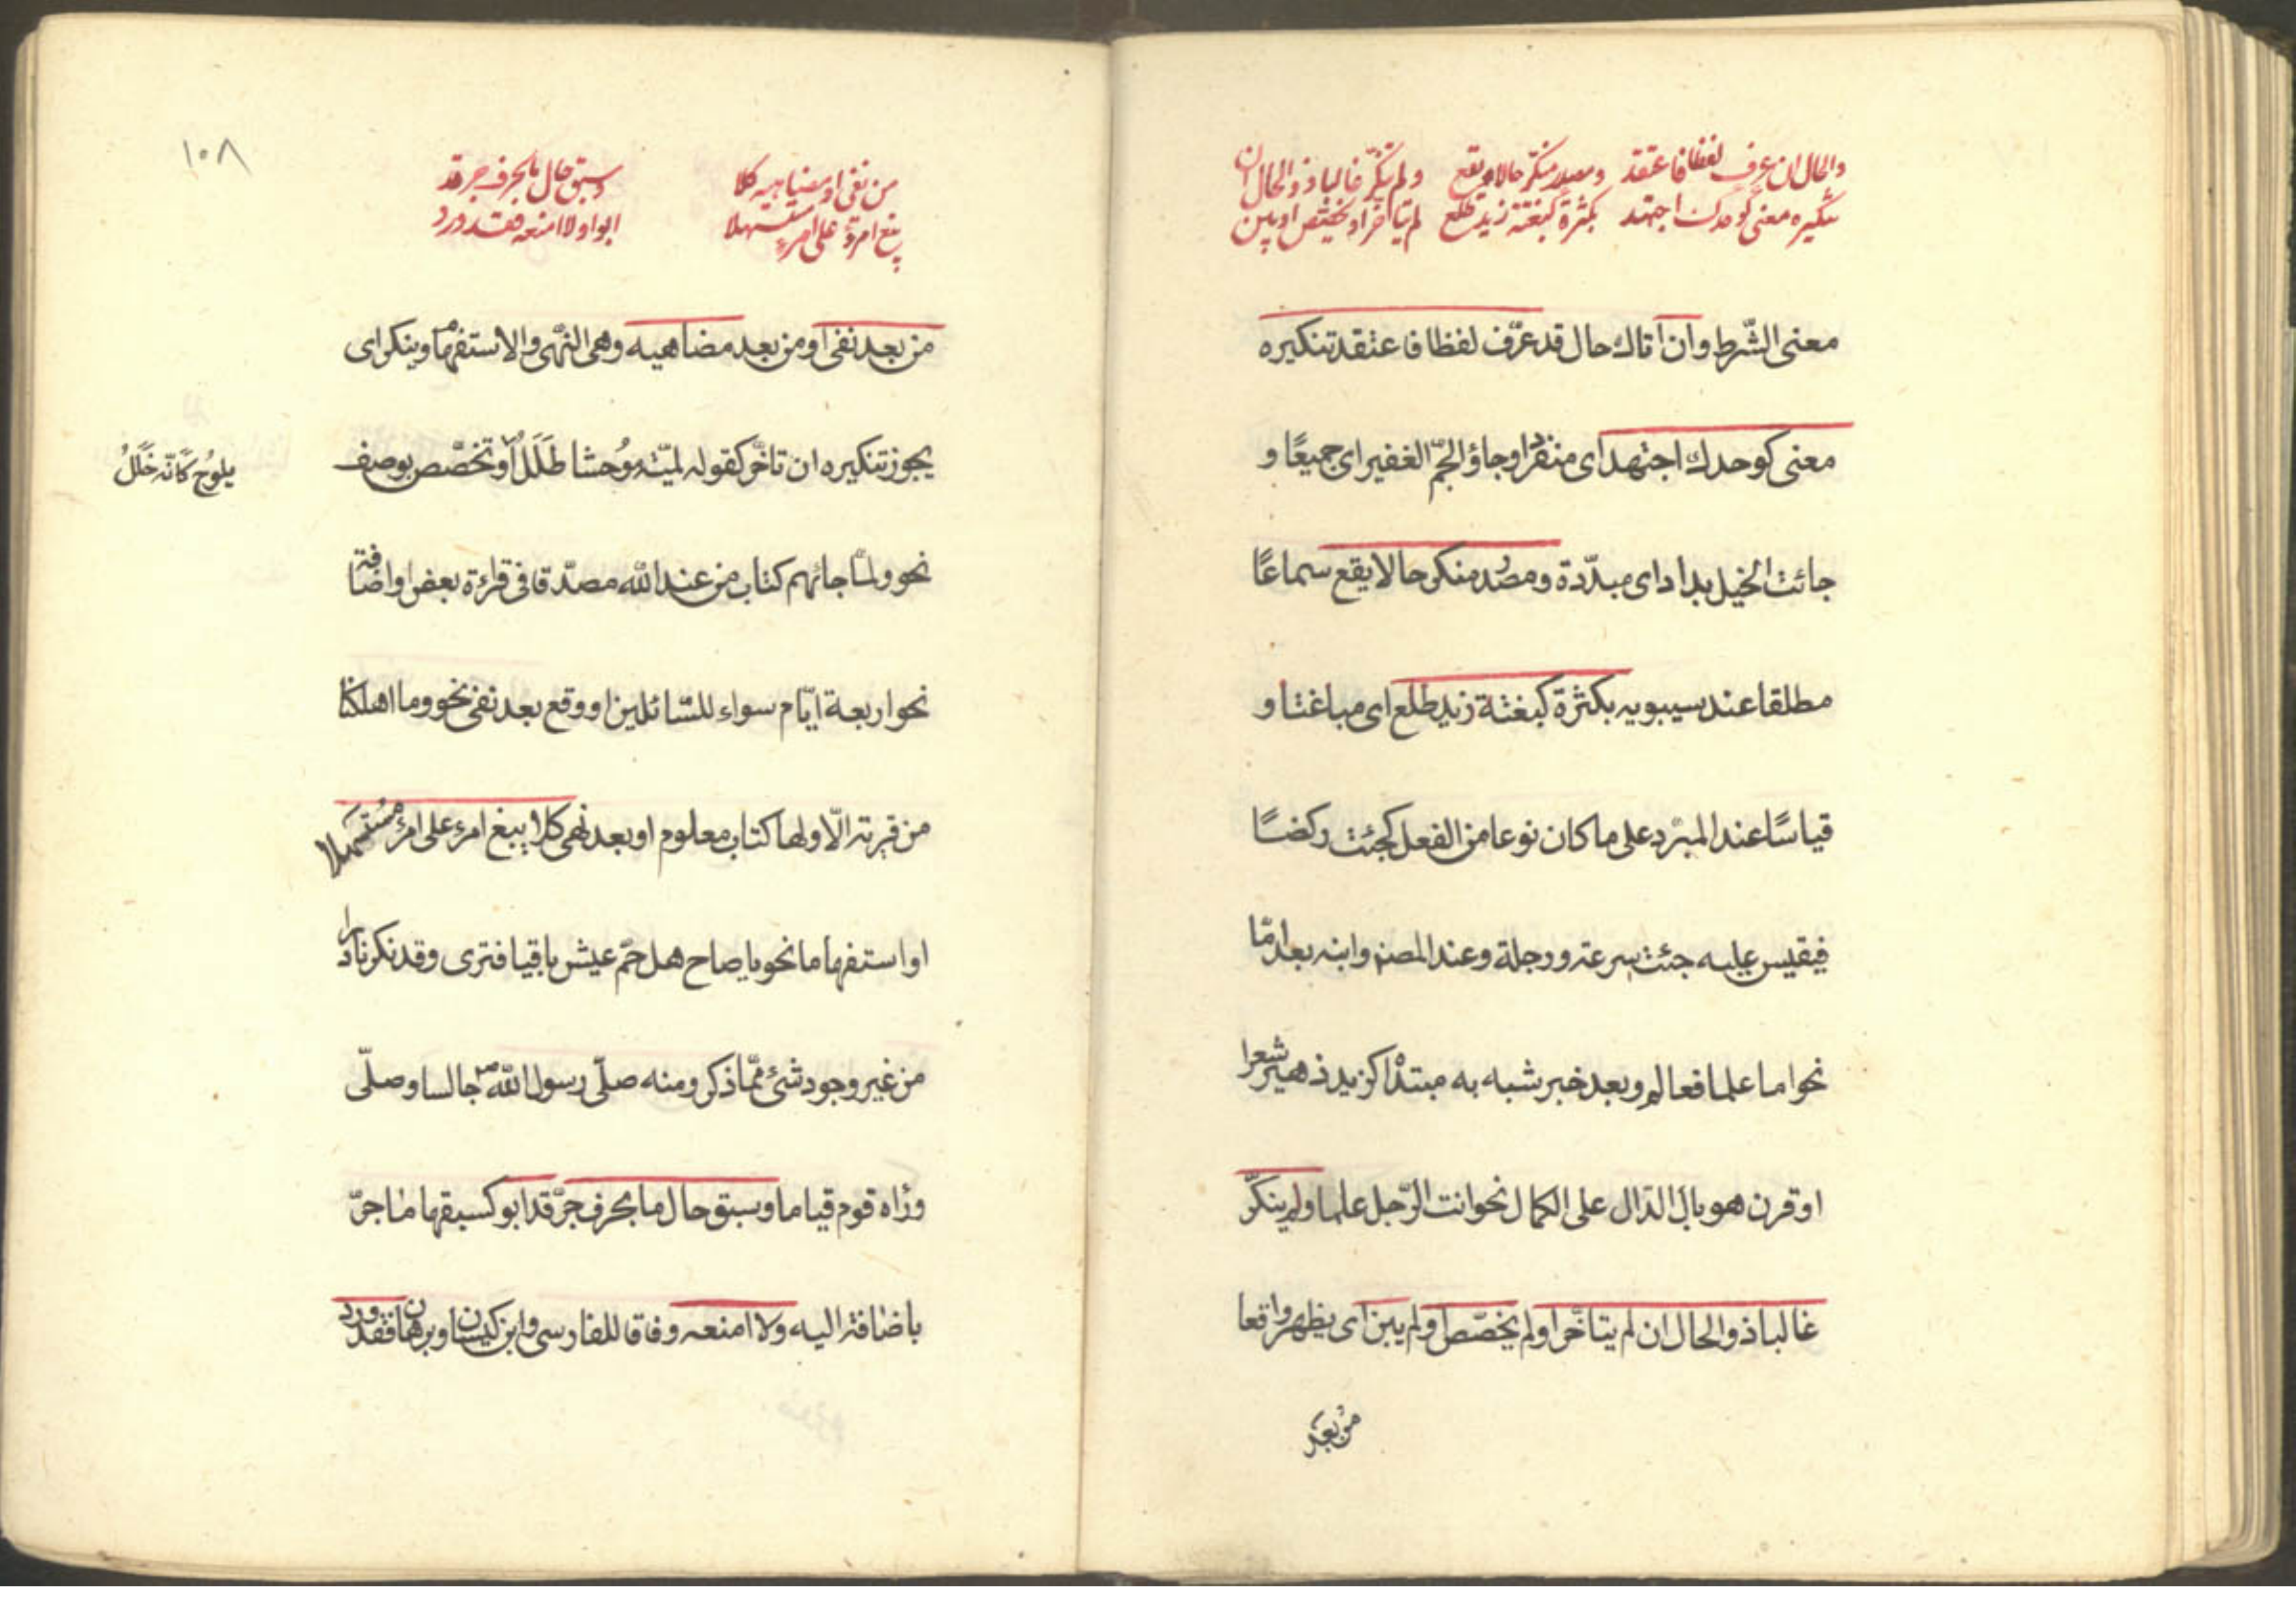 والحال ان عرف لفظا فاعتقد ومصدر منكر حالا يقع ولم ينكر غالبا ذو الحال ان
تنكيره معنى كوحدك اجتهد بكثرة كبغتة زيد طلع لم يتاخر او يخصص او يبن
معنى الشّرط وان اتاك حال قد عرّف لفظا فاعتقد تنكيره
معنى كوحدك اجتهد اى منفردا وجاؤ الجمّ الغفير اى جميعًا و
جائت الخيل بداد اى مبدّدة ومصدر منكر حالا يقع سماعًا
مطلقا عند سيبويه بكثرة كبغتة زيد طلع اى مباغتا و
قياسًا عند المبرّد على ما كان نوعا من الفعل كجئت ركضًا
فيقيس عليه جئت سرعة ورجلة وعند المصنف وابنه بعد امّا
نحو اما علما فعالم وبعد خبر شبه به مبتدأ كزيد زهير شعرا
او قرن هو بال الدّال على الكمال نحو انت الرّجل علما ولم ينكّر
غالبا ذو الحال ان لم يتاخّر او لم يخصّص او لم يبن اى يظهر واقعا
من بعد
١٠٨
من نفى او مضاهيه كلا وسبق حال ما بحرف جر قد
يبغ امرؤ على امرئ مستسهلا ابوا ولا امنعه فقد ورد
من بعد نفى او من بعد مضاهيه وهى النّهى والاستفهام وينكر اى
يجوز تنكيره ان تاخّر كقوله لميّة مُوحشا طَلَلُ او تخصّص بوصف
يلوُح كَانّه خَلَلُ
نحو ولمّا جائهم كتاب من عند الله مصدّقا فى قراءة بعض او اضافة
نحو اربعة ايّام سواء للسّائلين او وقع بعد نفى نحو وما اهلكنا
من قرية الّا ولها كتاب معلوم او بعد نهى كلا يبغ امرء على امرء مُستسهلا
او استفهاما نحو يا صاح هل حمّ عيش باقيا فترى وقد نكر نادرا
من غير وجود شئ ممّا ذكر ومنه صلّى رسول الله ص جالسا وصلّى
ورٰاه قوم قياما وسبق حال ما بحرف جرّ قد ابو كسبقها ما جرّ
باضافة اليه ولا امنعه وفاقا للفارسى وابن كيسان وبرهان فقد ورد